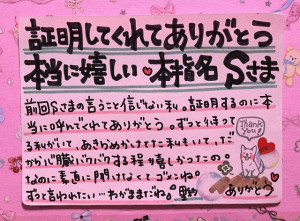 証明してくれてありがとう
本当に嬉しい♥本指名Sさま
前回Sさまの言うこと信じない私。証明するのに本
当に呼んでくれてありがとう。ずっと待って
る私がいて、あきらめかけてた私もいて、だ
から心臓バクバクする程嬉しかったの。
なのに素直に聞けなくてゴメンね。
ずっと言われたい…わがままだね。
Thank You!
ありがとう